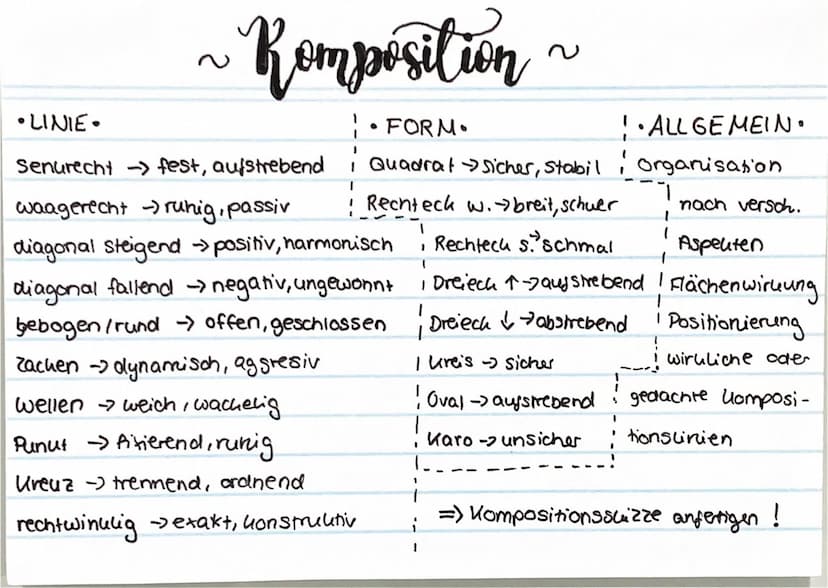 ~ Komposition ~
• LINIE •
senkrecht → fest, aufstrebend
waagerecht → ruhig, passiv
diagonal steigend → positiv, harmonisch
diagonal fallend → negativ, ungewohnt
gebogen/rund → offen, geschlossen
zacken → dynamisch, aggresiv
Wellen → weich, wackelig
Punkt → fixierend, ruhig
Kreuz → trennend, ordnend
rechtwinklig → exakt, konstruktiv
• FORM •
Quadrat → sicher, stabil
Rechteck w. → breit, schwer
Rechteck s. → schmal
Dreieck ↑ → aufstrebend
Dreieck ↓ → abstrebend
Kreis → sicher
Oval → aufstrebend
Karo → unsicher
• ALLGEMEIN •
Organisation
nach versch.
Aspekten
Flächenwirkung
Positionierung
wirkliche oder
gedachte Komposi-
tionslinien
=> Kompositionsskizze anfertigen !